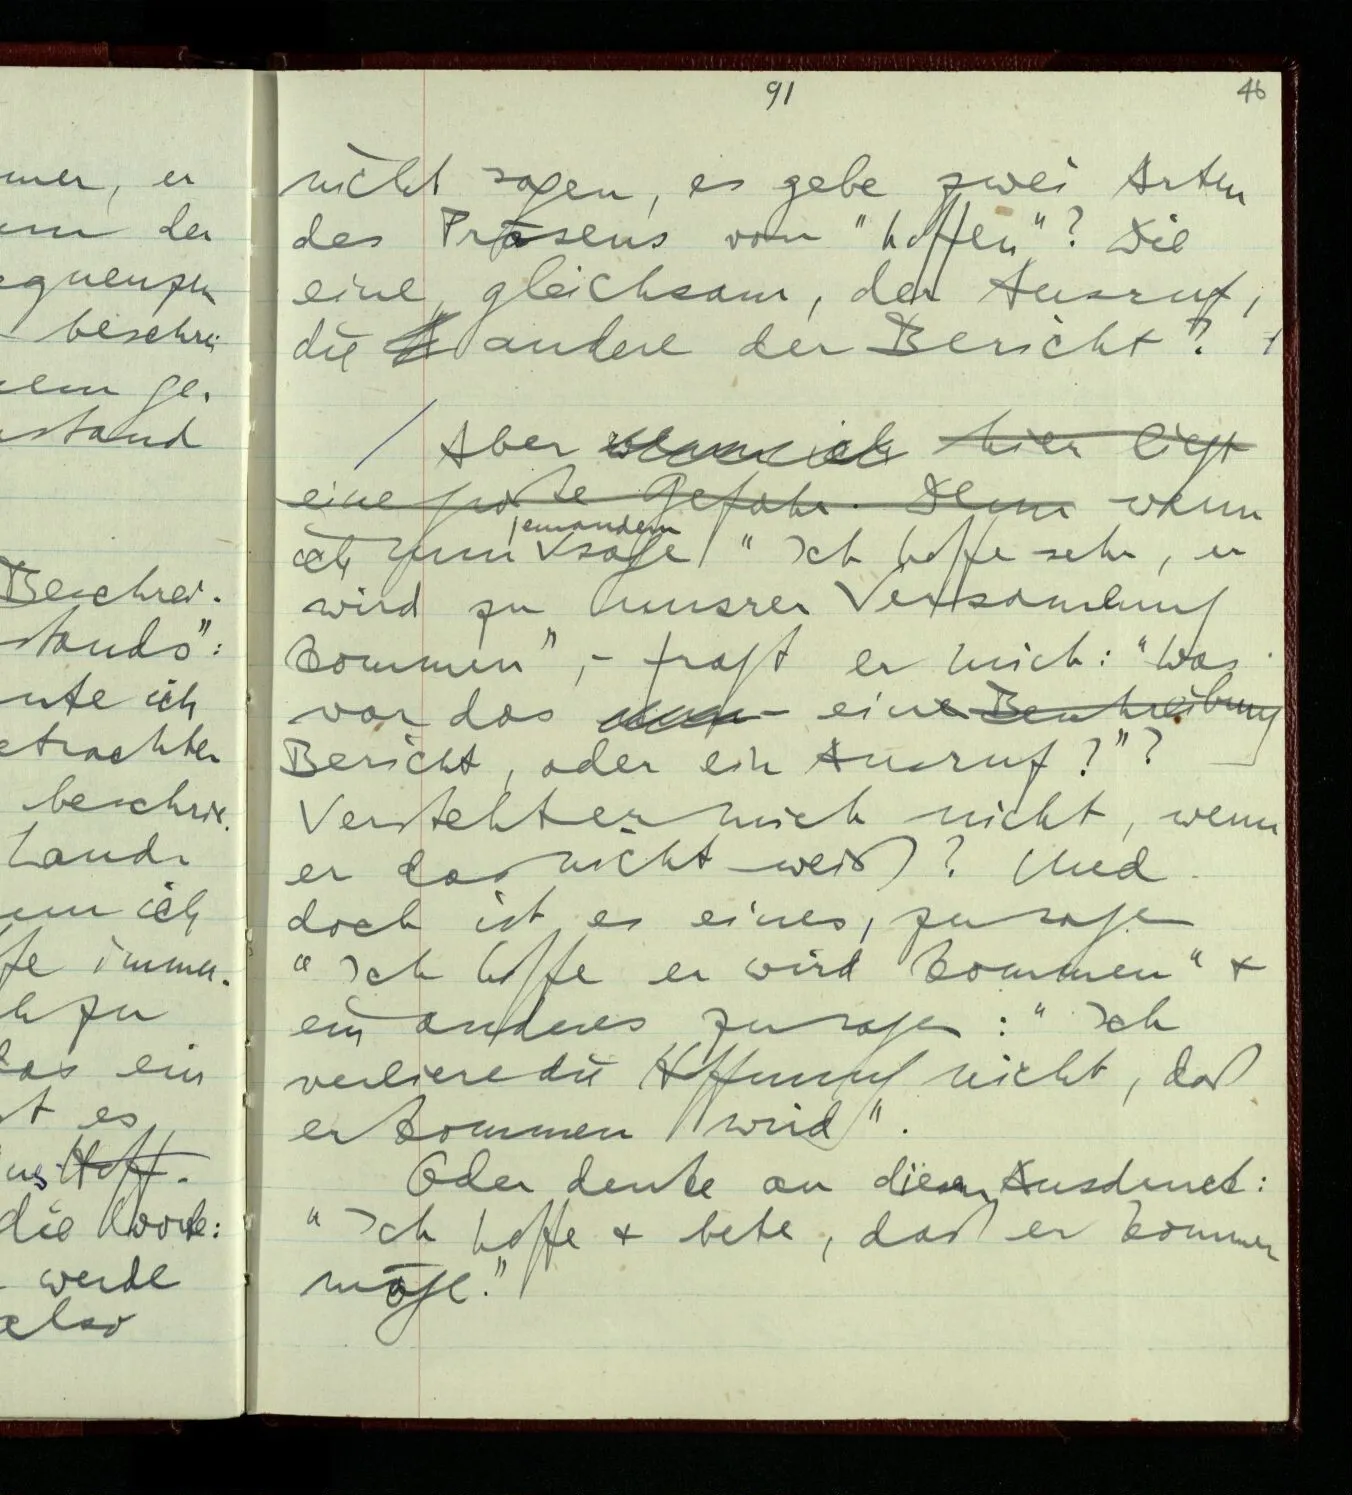 91
46
mer, er
der
equenzen
beschrei
ge.
stand
Beschrei.
stands":
nte ich
etrachten
beschrie.
Land.
ich
ffe immer.
zu
das ein
t es
Hoff.
die Worte:
werde
also
nicht sagen, es gebe zwei Arten
des Präsens von "hoffen"? Die
eine, gleichsam, der Ausruf,
die andere der Bericht?
/ Aber wenn ich hier liegt
eine große Gefahr. Denn wenn
ich nun jemandem sage "Ich hoffe sehr, er
wird zu unsrer Versammlung
kommen", – fragt er mich: "Was
war das – eine Beschreibung
Bericht, oder ein Ausruf?"?
Versteht er mich nicht, wenn
er das nicht weiß? Und
doch ist es eines, zu sagen
"Ich hoffe er wird kommen" +
ein anderes zu sagen: "Ich
verliere die Hoffnung nicht, daß
er kommen wird".
Oder denke an diesen Ausdruck:
"Ich hoffe + bete, daß er kommen
möge."